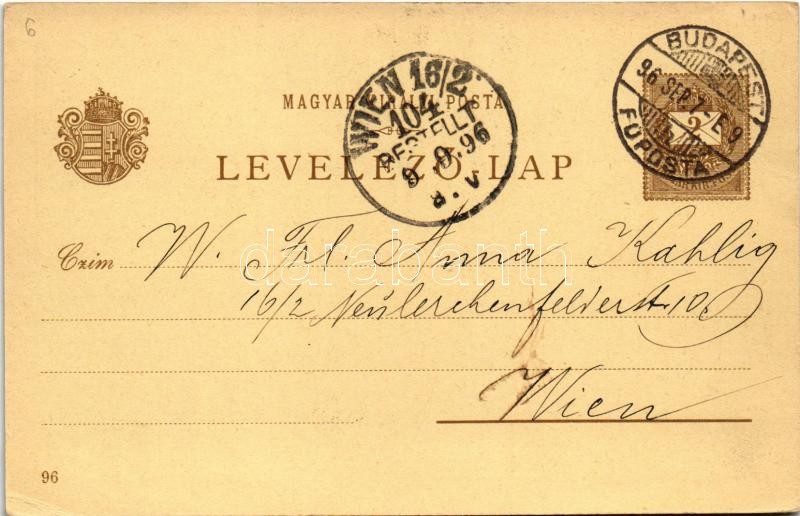 6
MAGYAR KIRÁLYI POSTA
LEVELEZŐ-LAP
WIEN 16/2.
104
BESTELLT
9.9.96
8.V
BUDAPEST
96 SEP. 7 - E 9
FŐPOSTA
2
Czim W. Frl. Anna Kahlig
16/2 Neulerchenfelderstr. 10.
Wien
96
darabanth